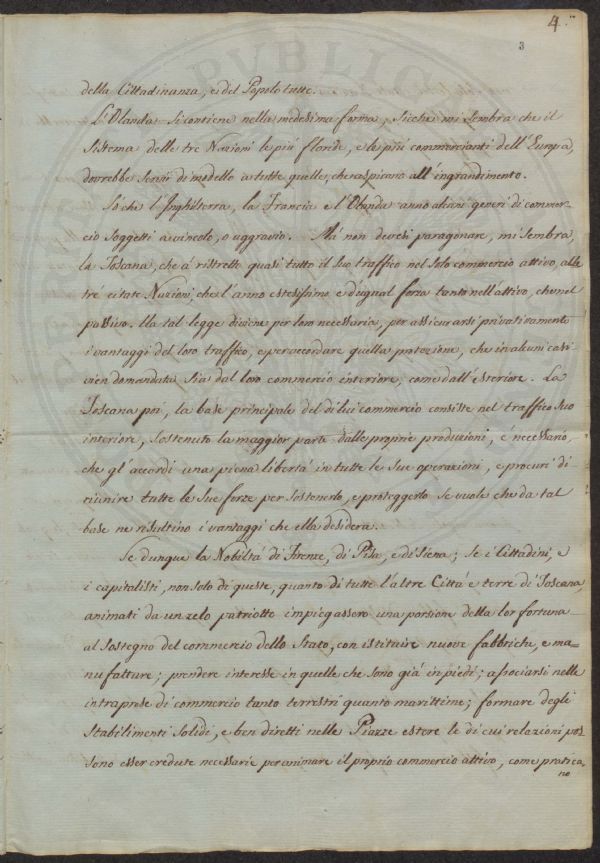 4.
3
della Cittadinanza, e del Popolo tutto.
L'Olanda si contiene nella medesima forma, sicche mi sembra che il
Sistema delle tre Nazioni le più floride, e le più commercianti dell'Europa,
dovrebbe servir di modello a tutte quelle, che aspirano all'ingrandimento.
Sò che l'Inghilterra, la Francia e l'Olanda anno alcuni generi di commer-
cio soggetti a vincolo, o aggravio. Mà non devesi paragonare, mi sembra,
la Toscana, che à ristretto quasi tutto il suo traffico nel solo commercio attivo, alle
trè citate Nazioni, che l'anno estesissimo e d'ugual forza tanto nell'attivo, che nel
passivo. Una tal legge diviene per loro necessaria, per assicurarsi privativamente
i vantaggi del loro traffico, e per accordare quella protezione, che in alcuni casi
vien domandata sia dal loro commercio interiore, come dall'esteriore. La
Toscana poi, la base principale del di lui commercio consiste nel traffico suo
interiore, sostenuto la maggior parte dalle proprie produzioni, é necessario,
che gl'accordi una piena libertà in tutte le sue operazioni, e procuri di
riunire tutte le sue forze per sostenerlo, e proteggerlo se vuole che da tal
base ne risultino i vantaggi che ella desidera.
Se dunque la Nobiltà di Firenze, di Pisa, e di Siena; se i Cittadini, e
i capitalisti, non solo di queste, quanto di tutte l'altre Città e terre di Toscana,
animati da un zelo patriotto impiegassero una porsione della lor fortuna
al sostegno del commercio dello Stato, con istituire nuove fabbriche, e ma=
nufatture; prendere interesse in quelle che sono già in piedi; associarsi nelle
intraprese di commercio tanto terrestri quanto marittime; formare degli
Stabilimenti solidi, e ben diretti nelle Piazze estere le di cui relazioni pos
sono esser credute necessarie per animare il proprio commercio attivo, come pratica,
no